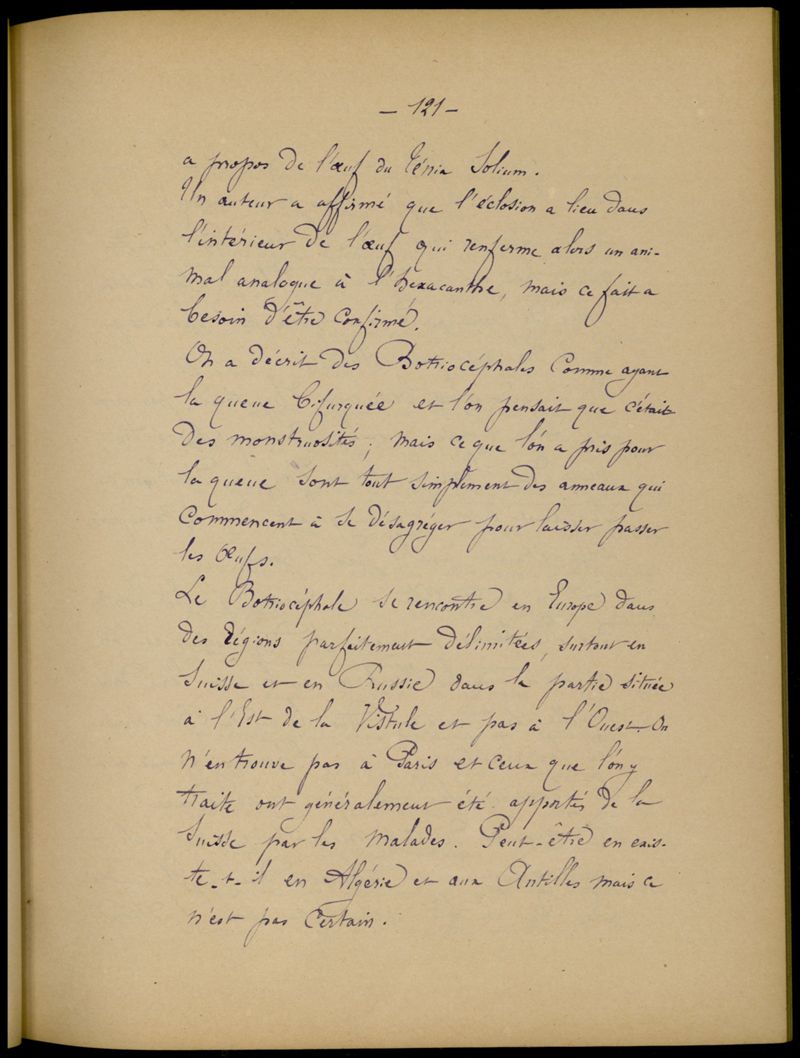 — 121 —
a propos de l'œuf du Ténia Solium.
Un auteur a affirmé que l'éclosion a lieu dans
l'intérieur de l'œuf qui renferme alors un ani-
mal analogue à l'hexacanthe, mais ce fait a
besoin d'être confirmé.
On a décrit des Botriocéphales comme ayant
la queue bifurquée et l'on pensait que c'était
des monstruosités ; mais ce que l'on a pris pour
la queue sont tout simplement des anneaux qui
commencent à se désagréger pour laisser passer
les œufs.
Le Botriocéphale se rencontre en Europe dans
des régions parfaitement délimitées, surtout en
Suisse et en Russie dans la partie située
à l'Est de la Vistule et pas à l'Ouest. On
n'en trouve pas à Paris et ceux que l'on y
traite ont généralement été apportés de la
Suisse par les malades. Peut-être en exis-
te-t-il en Algérie et aux Antilles mais ce
n'est pas certain.